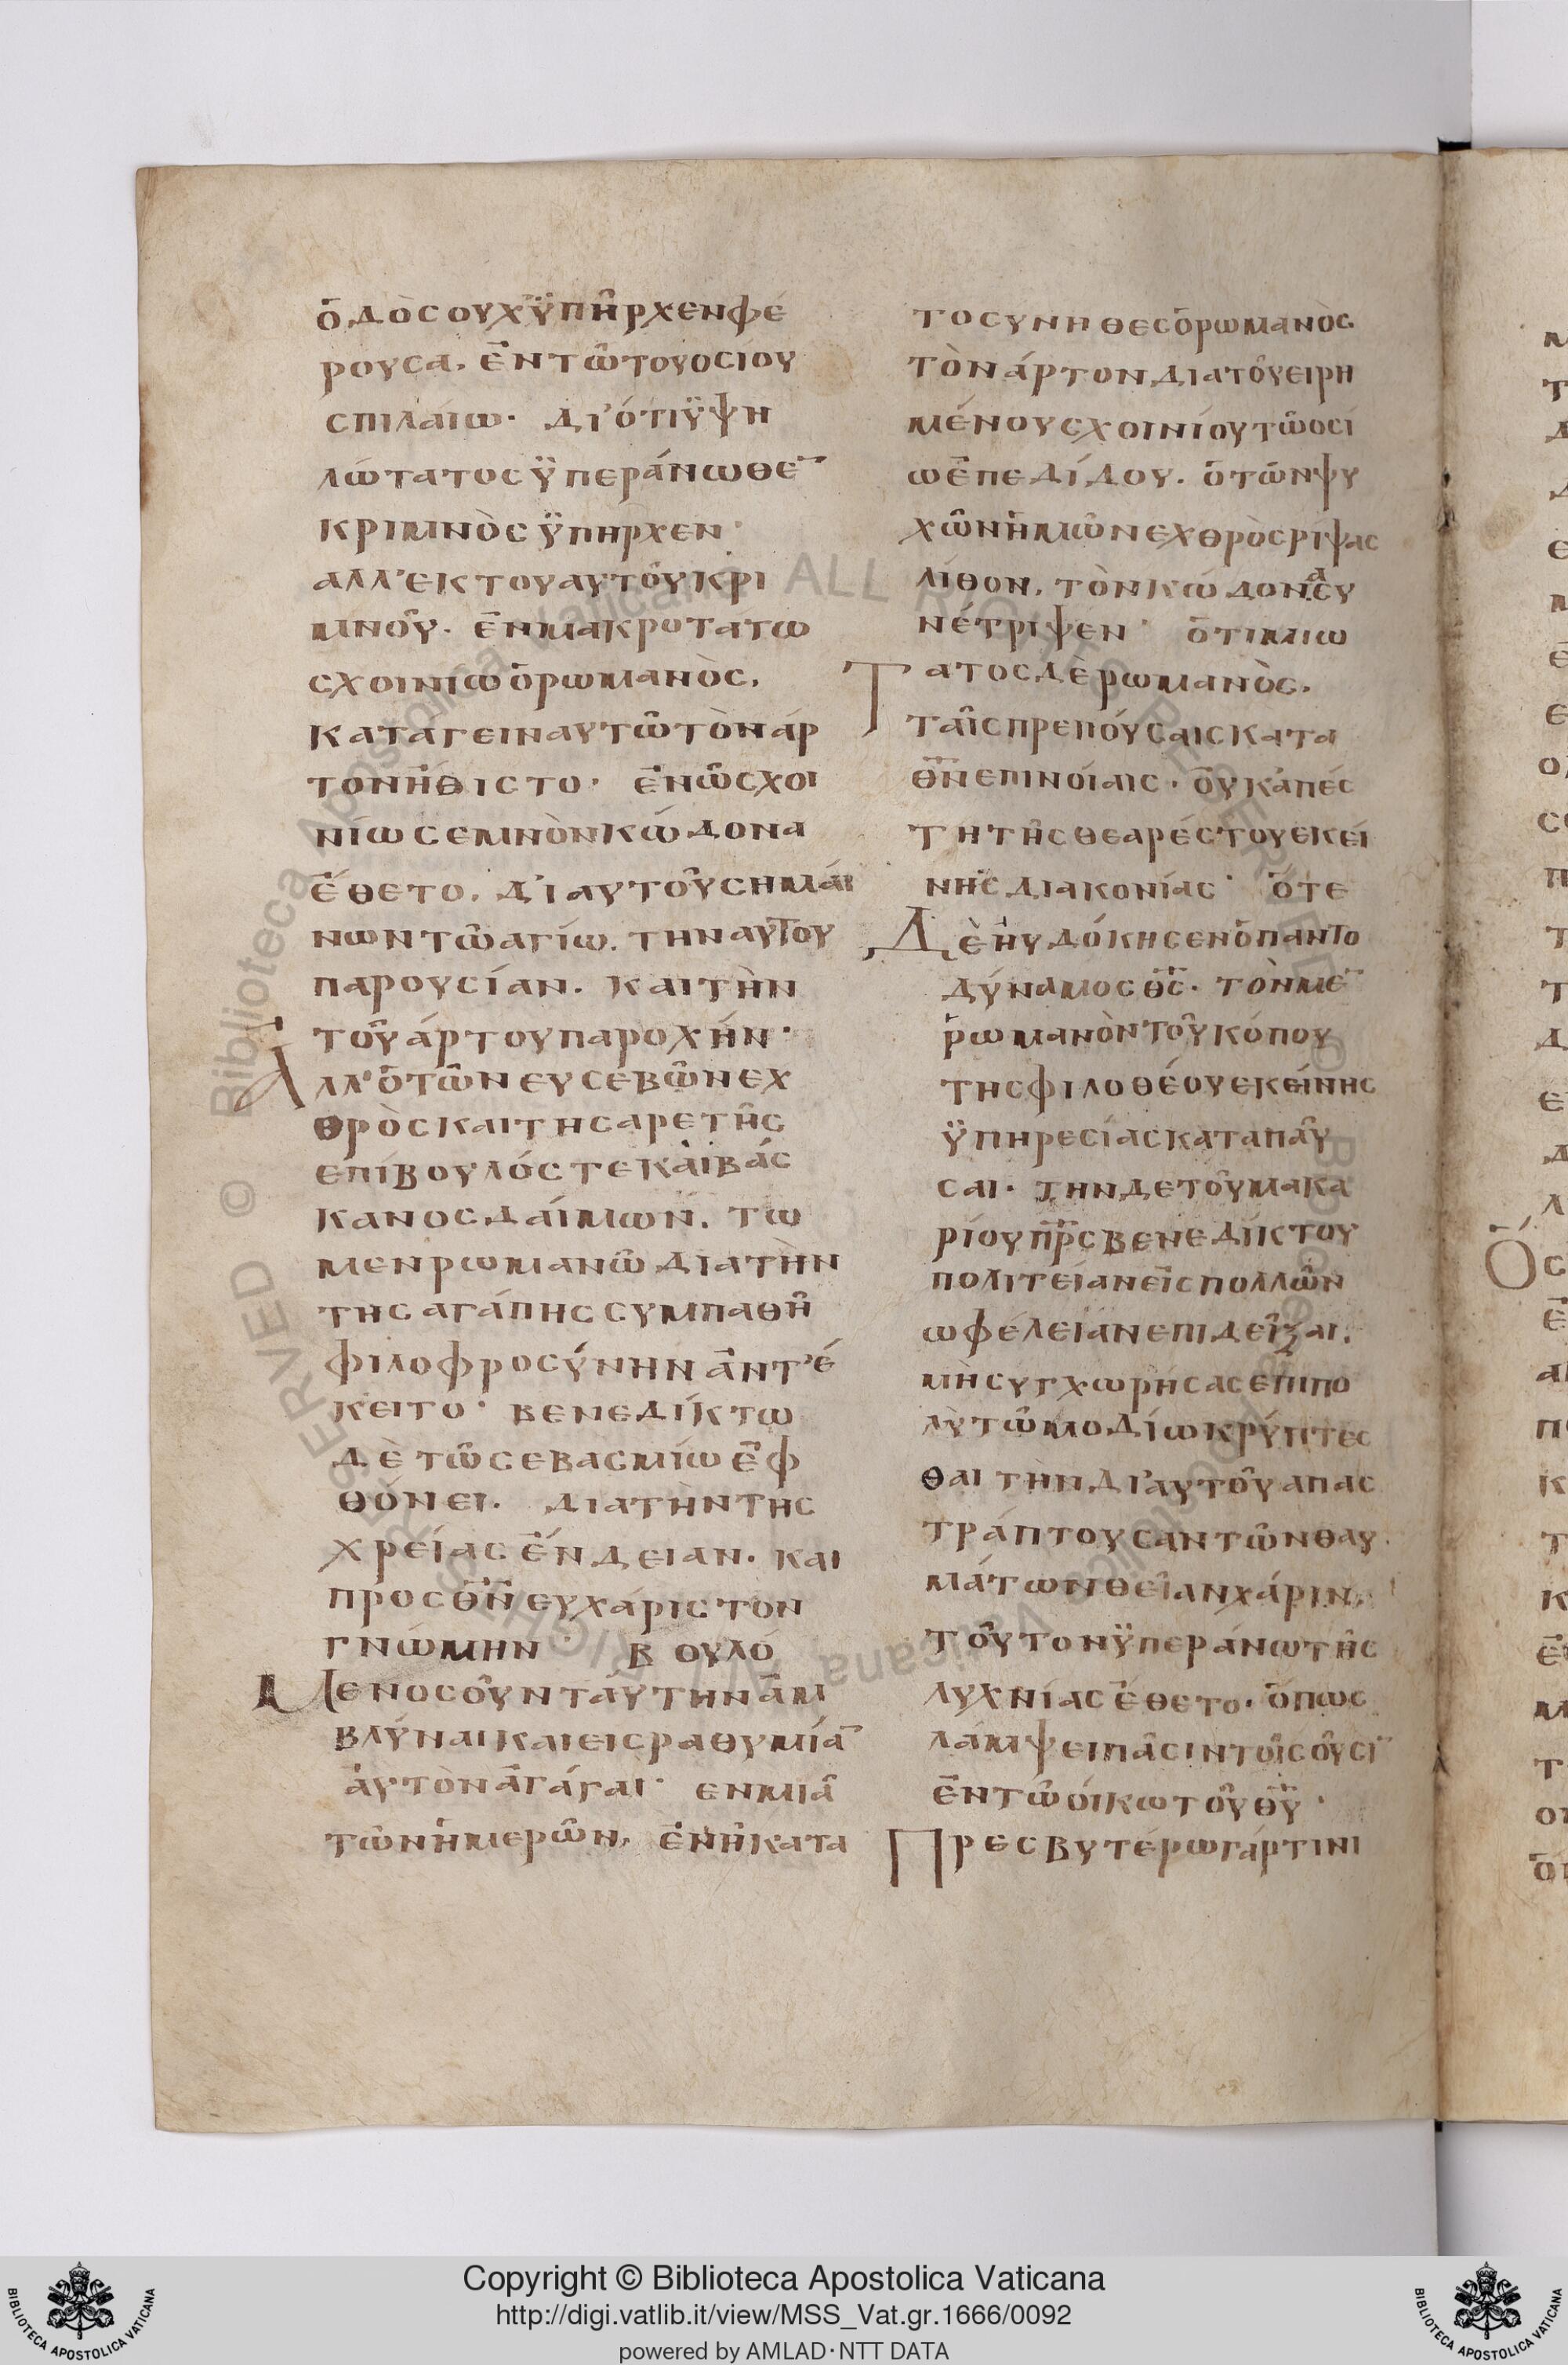 ὁδὸσουχϋπῆρχενφέ
ρουσα. ἐντῶτουοσίου
σπιλαίω· δι'ότιϋψη
λώτατοσϋπεράνωθε̅
κριμνὸσϋπηρχεν·
αλλ'εκτουαυτοῦκρι
μνοῦ. ἐνμακροτάτω
σχοινίωὁρωμανὸς.
καταγειναυτῶτὸνάρ
τονἤθιστο· ἐνῶσχοι
νίωσεμνὸνκώδονα
ἔθετο. δι'αυτοῦσημάι
νωντῶαγίω. τηναυτου
παρουσίαν. καιτὴν
τοῦάρτουπαροχήν·
Αλλ'ὁτῶνευσεβῶνεχ
θρὸσκαιτησαρετῆς
επίβουλόστεκαὶβάς
κανοσδαίμων. τω
μενρωμανῶδιατὴν
τησαγάπησσυμπαθῆ
φιλοφροσύνηνἀντ'έ
κειτο· βενεδίκτω
δὲτῶσεβασμίωἐφ
θόνει. διατὴντης
χρείασἔνδειαν. και
προσθ̅ν̅ευχάριστον
γνώμην· βουλό
Μενοσοῦνταύτηνἀμ
βλύναικαιεισραθυμία̅
ἀυτὸνἀγάγαι· ενμιᾶ
τῶνἡμερῶν, ἐνῆκατα
τοσυνηθεσὁρωμανὸς
τὸνάρτονδιατοῦειρη
μένουσχοινίουτῶοσί
ωἐπεδίδου. ὁτῶνψυ
χῶνἡμῶνεχθρὸσρίψας
λίθον. τὸνκώδονασυ
νέτριψεν· ὁτιμιω
Τατοσδὲρωμανὸς.
ταῖσπρεπούσαισκατα
θ̅ν̅επινοίαις. οὐκἀπέσ
τητῆσθεαρέστουεκεί
νησδιακονίας· ὅτε
Δὲηυδόκησενὁπαντο
δύναμοσθ̅ς̅. τὸνμε̅
ρωμανὸντοῦκόπου
τησφιλοθέουεκείνης
ϋπηρεσίασκαταπαῦ
σαι. τηνδετοῦμακα
ρίουπ̅ρ̅σ̅βενεδίκτου
πολιτείανεἰσπολλῶν
ωφέλειανεπιδεῖξαι.
μὴσυγχωρήσασεπιπο
λὺτῶμοδίωκρύπτεσ
θαιτὴνδι'αυτοῦαπασ
τράπτουσαντῶνθαυ
μάτωνθείανχάριν.
τοῦτονϋπεράνωτῆς
λυχνίασἔθετο. ὅπως
λάμψειπᾶσιντοῖσοῦσι̅
ἐντῶοίκωτοῦθ̅υ̅·
Πρεσβυτέρωγάρτινι
Copyright © Biblioteca Apostolica Vaticana
http://digi.vatlib.it/view/MSS_Vat.gr.1666/0092
powered by AMLAD·NTT DATA